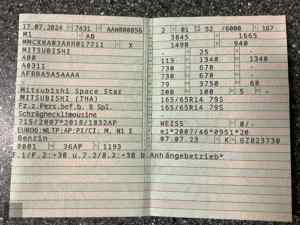 17.07.2024 7431
M1 AB
X
MITSUBISHI
A00
A0311
AFBBA5A5AAAA
Mitsubishi Space Star
MITSUBISHI (THA)
Fz.z.Pers.bef.b. 8 Spl.
Schräghecklimousine
715/2007*2018/1832AP
EURO6;WLTP;AP;PI/CI; M, N1 I
Benzin
0001 36AP 1193
F.1/F.2:+30 u.7.2/8.2:+30 b.Anhängebetrieb*
2 01 52 /6000 167
3845 1665
1490 940
- 25 -
115 1340 1340
730 670
730 670
79 3750 68
200 100 5 -
165/65R14 79S
165/65R14 79S
WEISS 0/-
e1*2007/46*0951*20
07.07.23 K